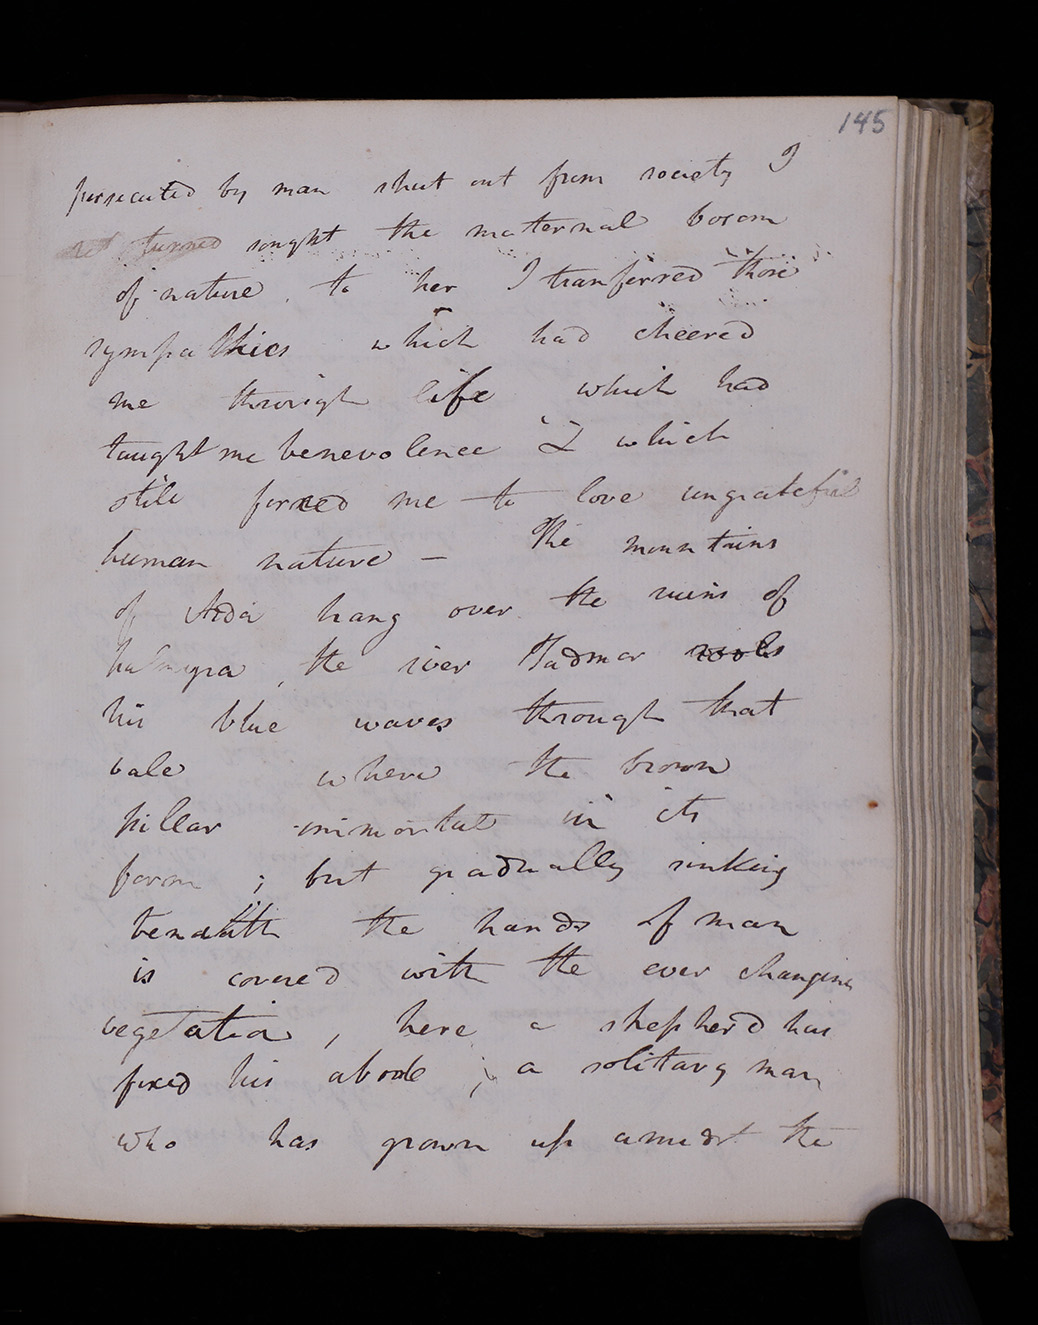 145
persecuted by man shut out from society I
turned sought the maternal bosom
of nature, to her I tranferred those
sympathies which had cheered
me through life which had
taught me benevolence & which
still forced me to love ungrateful
human nature — The mountains
of Arda hang over the ruins of
palmyra, the river Tadmor rools
his blue waves through that
vale where the brown
pillar immortal in its
form ; but gradually sinking
beneath the hands of man
is covered with the ever changing
vegetation, here a shepherd has
fixed his abode ; a solitary man
who has grown up amidst the